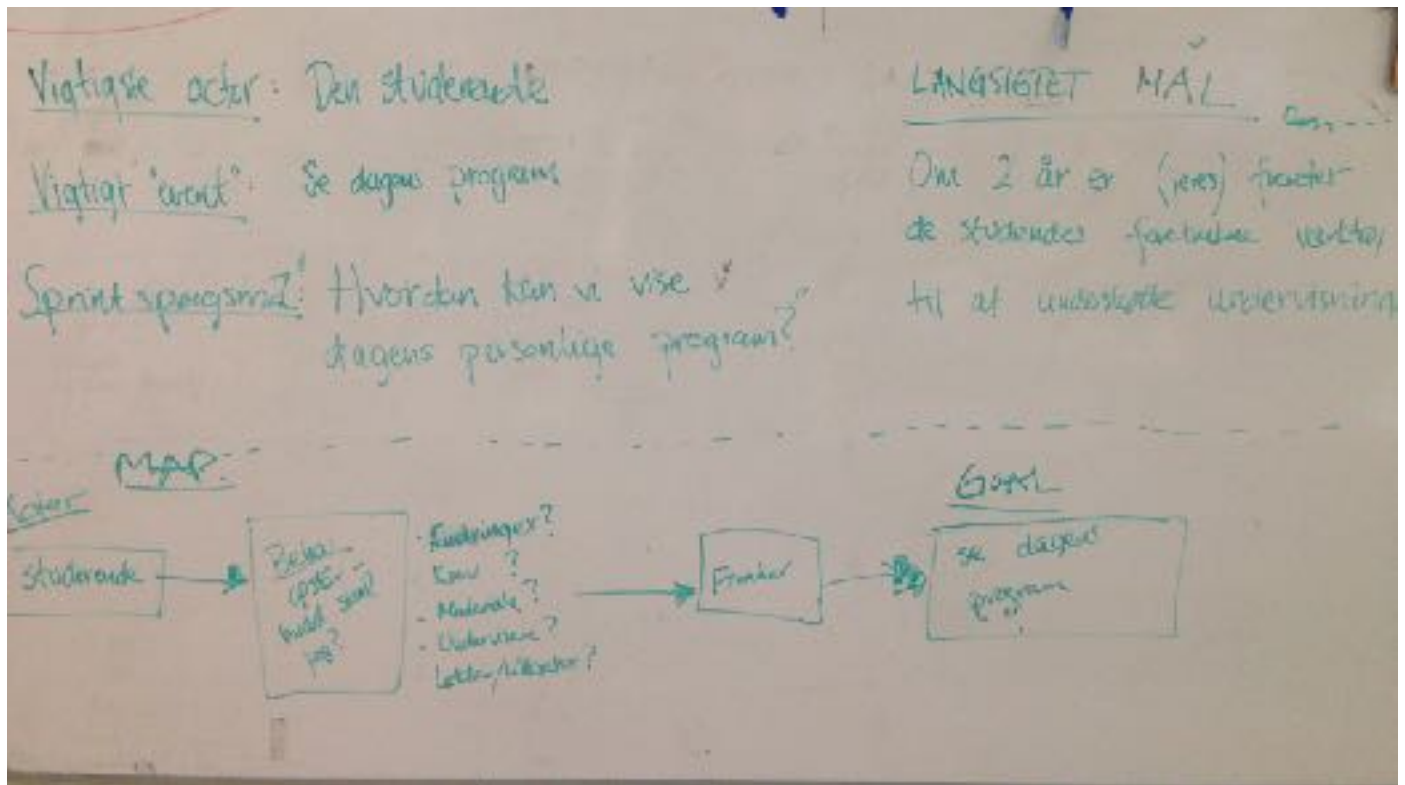 Vigtigste actor: Den studerende
Vigtigt "event": Se dagens program
Sprint spørgsmål: Hvordan kan vi vise
dagens personlige program?"
LANGSIGTET MÅL
Om 2 år er (jeres) fronter
de studerendes foretrukne værktøj
til at understøtte undervisning
MAP:
Actor
studerende
hvad skal
jeg?
- Ændringer?
?
- Materiale?
- Undervisere?
Fronter
Goal
se dagens
program